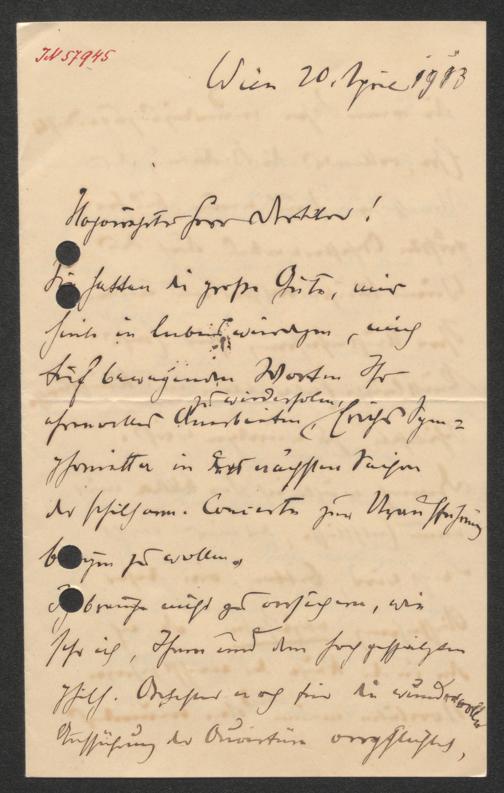 IN 57945
Wien 20. April 1913
Hochverehrter Herr Direktor!
Sie hatten die große Güte, mir
heute in liebenswürdigen, mich
tief bewegenden Worten Ihr
ehrenvolles Anerbieten zu wiederholen, Erichs Sym=
phonietta in der nächsten Saison
der philharm. Concerte zur Uraufführung
bringen zu wollen.
Ich brauche nicht zu versichern, wie
sehr ich, Ihnen und dem hochgeschätzten
philh. Orchester noch für die wundervolle
Aufführung der Ouvertüre verpflichtet,